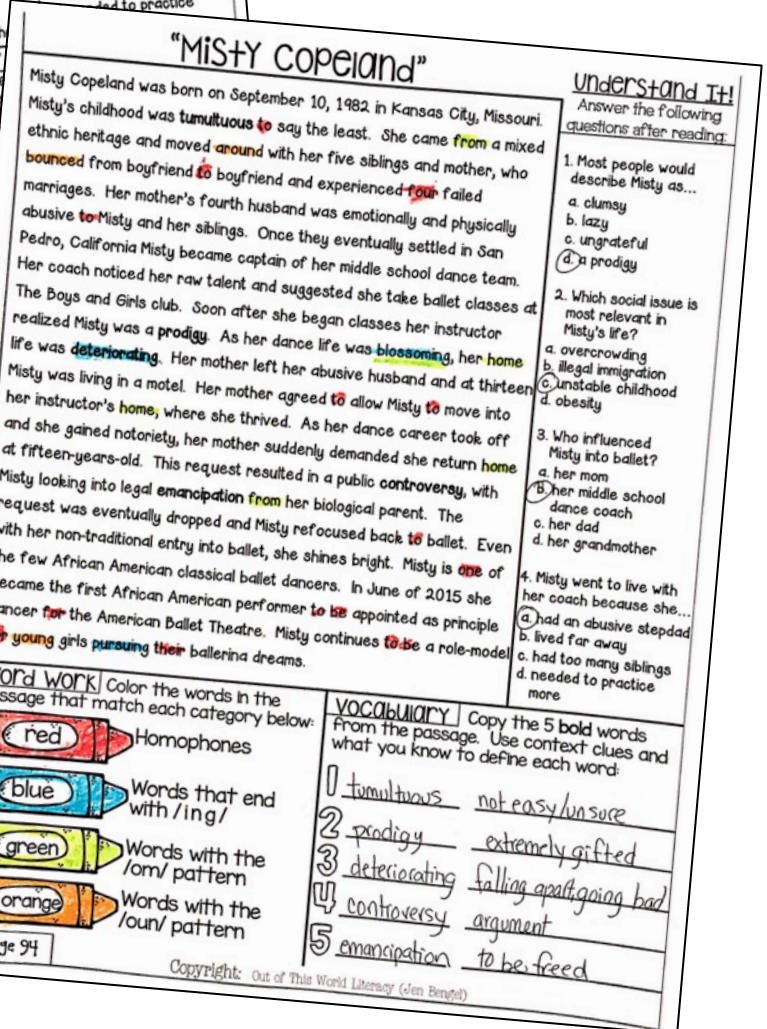 ded to practice
"Misty Copeland"
Misty Copeland was born on September 10, 1982 in Kansas City, Missouri.
Misty's childhood was tumultuous to say the least. She came from a mixed
ethnic heritage and moved around with her five siblings and mother, who
bounced from boyfriend to boyfriend and experienced four failed
marriages. Her mother's fourth husband was emotionally and physically
abusive to Misty and her siblings. Once they eventually settled in San
Pedro, California Misty became captain of her middle school dance team.
Her coach noticed her raw talent and suggested she take ballet classes at
The Boys and Girls club. Soon after she began classes her instructor
realized Misty was a prodigy. As her dance life was blossoming, her home
life was deteriorating. Her mother left her abusive husband and at thirteen
Misty was living in a motel. Her mother agreed to allow Misty to move into
her instructor's home, where she thrived. As her dance career took off
and she gained notoriety, her mother suddenly demanded she return home
at fifteen-years-old. This request resulted in a public controversy, with
Misty looking into legal emancipation from her biological parent. The
request was eventually dropped and Misty refocused back to ballet. Even
with her non-traditional entry into ballet, she shines bright. Misty is one of
he few African American classical ballet dancers. In June of 2015 she
ecame the first African American performer to be appointed as principle
ancer for the American Ballet Theatre. Misty continues to be a role-model
r young girls pursuing their ballerina dreams.
Understand It!
Answer the following
questions after reading:
1. Most people would
describe Misty as...
a. clumsy
b. lazy
c. ungrateful
d. a prodigy
2. Which social issue is
most relevant in
Misty's life?
a. overcrowding
b. illegal immigration
c. unstable childhood
d. obesity
3. Who influenced
Misty into ballet?
a. her mom
b. her middle school
dance coach
c. her dad
d. her grandmother
4. Misty went to live with
her coach because she...
a. had an abusive stepdad
b. lived far away
c. had too many siblings
d. needed to practice
more
ord Work Color the words in the
ssage that match each category below:
red Homophones
blue Words that end
with /ing/
green Words with the
/om/ pattern
orange Words with the
/oun/ pattern
ge 94
Vocabulary Copy the 5 bold words
from the passage. Use context clues and
what you know to define each word:
1 tumultuous not easy/unsure
2 prodigy extremely gifted
3 deteriorating falling apart, going bad
4 controversy argument
5 emancipation to be freed
Copyright: Out of This World Literacy (Jen Bengel)